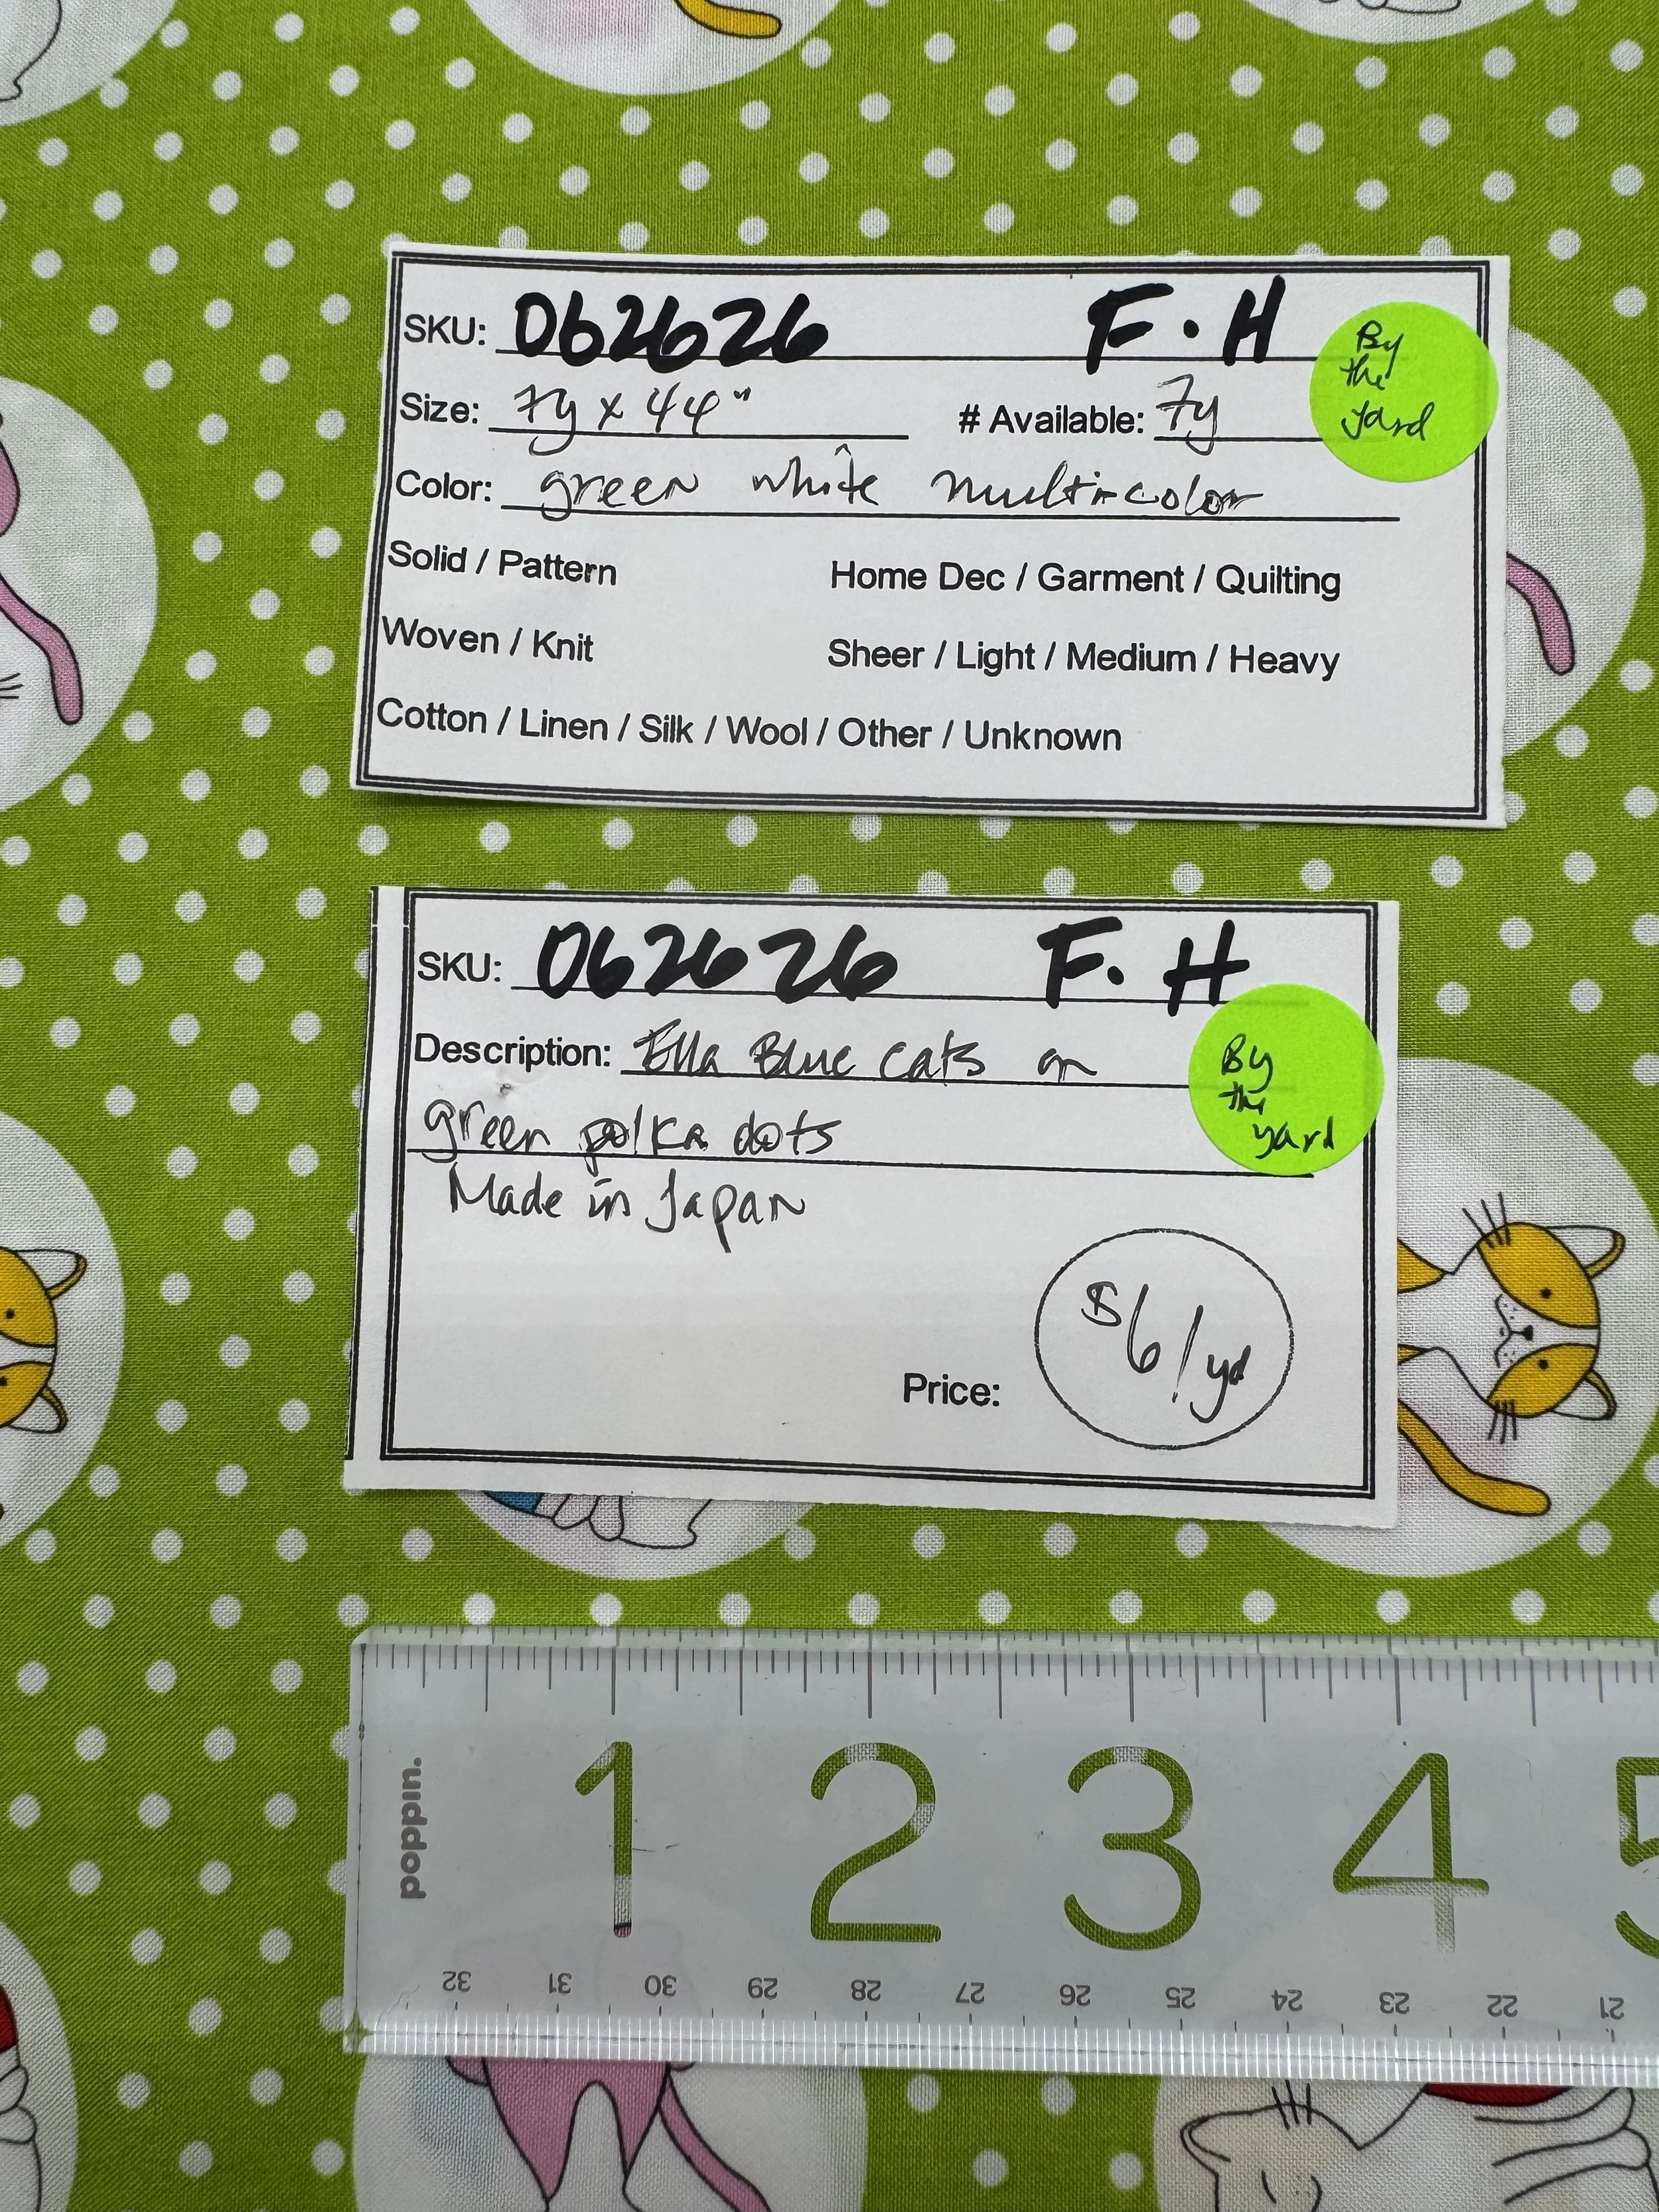 SKU: 062626 F.H
By
the
yard
Size: 7y x 44" # Available: 7y
Color: green white multi-color
Solid / Pattern Home Dec / Garment / Quilting
Woven / Knit Sheer / Light / Medium / Heavy
Cotton / Linen / Silk / Wool / Other / Unknown
SKU: 062626 F.H
Description: Ella Blue cats on
By
the
yard
green polka dots
Made in Japan
Price: $6/yd
poppin.
1 2 3 4 5
32 31 30 29 28 27 26 25 24 23 22 21